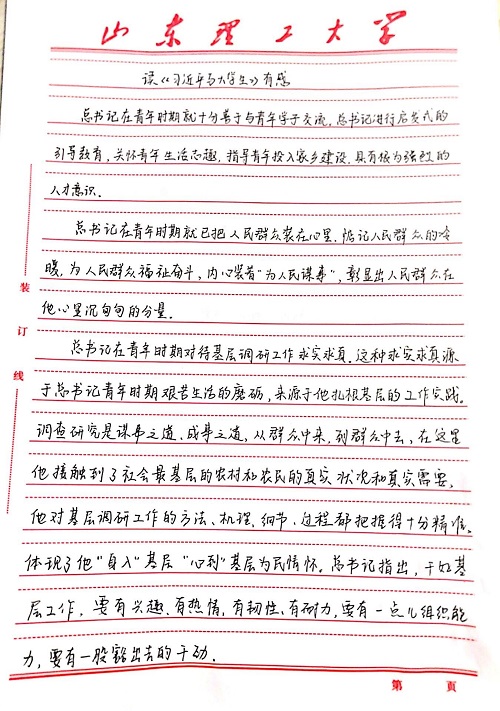 山东理工大学
读《习近平与大学生》有感
总书记在青年时期就十分善于与青年学子交流,总书记进行启发式的
引导教育,关怀青年生活志趣,指导青年投入家乡建设,具有极为强烈的
人才意识.
总书记在青年时期就已把人民群众装在心里.惦记人民群众的冷
暖,为人民群众福祉奋斗,内心装着“为人民谋事”,彰显出人民群众在
他心里沉甸甸的分量.
总书记在青年时期对待基层调研工作求实求真.这种求实求真源
于总书记青年时期艰苦生活的磨砺,来源于他扎根基层的工作实践。
调查研究是谋事之道、成事之道,从群众中来,到群众中去,在这里
他接触到了社会最基层的农村和农民的真实状况和真实需要,
他对基层调研工作的方法、机理、细节、过程都把握得十分精准.
体现了他“身入”基层“心到”基层为民情怀。总书记指出,干好基
层工作,要有兴趣、有热情,有韧性、有耐力,要有一点儿组织能
力,要有一股豁出去的干劲.
装
订
线
第 頁